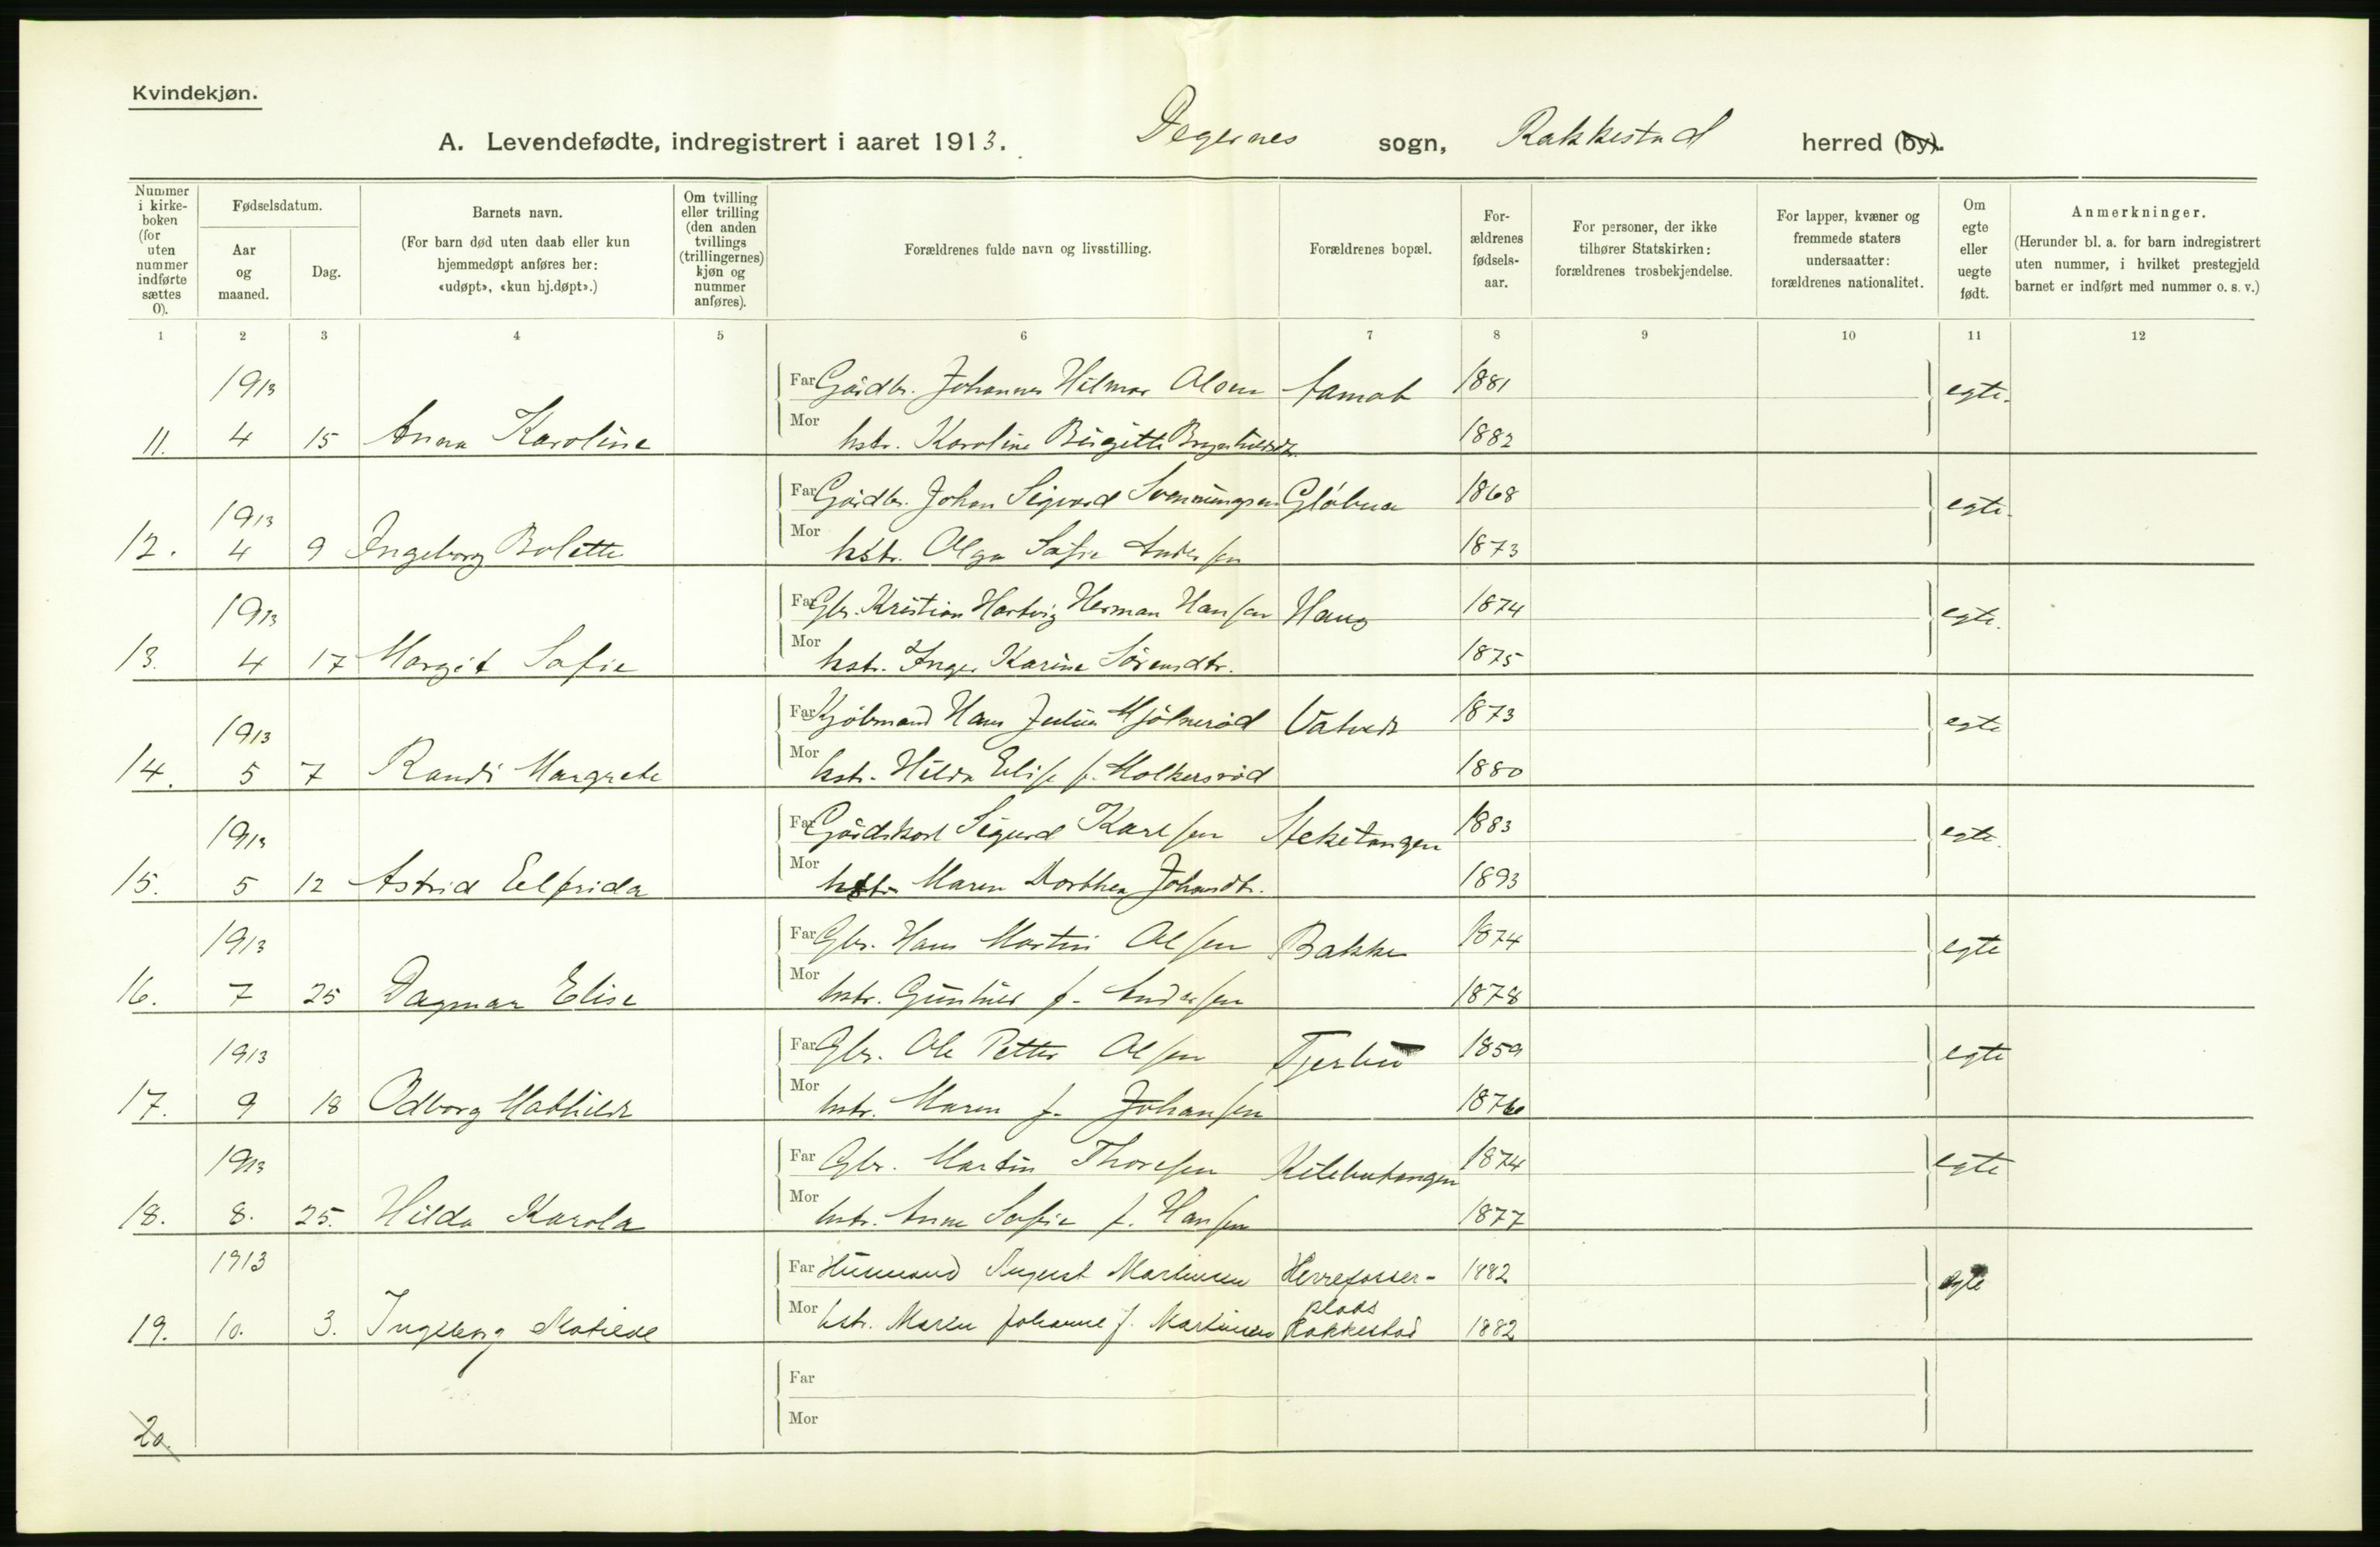 Kvindekjøn.
A. Levendefødte, indregistrert i aaret 1913. Degernes sogn, Rakkestad herred (by).
Nummer i kirke-boken (for uten nummer indførte sættes 0).
Fødselsdatum.
Aar og maaned.
Dag.
Barnets navn.
(For barn død uten daab eller kun hjemmedøpt anføres her: «udøpt», «kun hj.døpt».)
Om tvilling eller trilling (den anden tvillings (trillingernes) kjøn og nummer anføres).
Forældrenes fulde navn og livsstilling.
Forældrenes bopæl.
For-ældrenes fødsels-aar.
For personer, der ikke tilhører Statskirken: forældrenes trosbekjendelse.
For lapper, kvæner og fremmede staters undersaatter: forældrenes nationalitet.
Om egte eller uegte født.
Anmerkninger.
(Herunder bl. a. for barn indregistrert uten nummer, i hvilket prestegjeld barnet er indført med nummer o. s. v.)
1 2 3 4 5 6 7 8 9 10 11 12
1913 Far Gårdbr. Johannes Hilmar Olsen 1881 egte.
11. 4 15 Anna Karoline Mor hstr. Karoline Birgitte 1882
1913 Far Gårdbr. Johan Sigvard Svenningsen Glåbua 1868 egte.
12. 4 9 Ingeborg Bolette Mor hstr. Olga Sofie Andersen 1873
1913 Far Gbr. Kristian Hartvig Herman Hansen Haug 1874 egte.
13. 4 17 Margit Sofie Mor hstr. Inger Karine Sørensdtr. 1875
1913 Far Kjøbmand Hans Julius Mjølnerød Vatvedt 1873 egte
14. 5 7 Randi Margrete Mor hstr. Hilda Elise f. Holkersrød 1880
1913 Far Gårdskarl Sigurd Karlsen Steketangen 1883 egte.
15. 5 12 Astrid Elfrida Mor hstr. Maren Dorthea Johansdtr. 1893
1913 Far Gbr. Hans Martin Olsen Bakke 1874 egte
16. 7 25 Dagmar Elise Mor hstr. Gunhild f. Andersen 1878
1913 Far Gbr. Ole Petter Olsen Tjerbu 1859 egte
17. 9 18 Odborg Mathilde Mor hstr. Maren f. Johansen
1913 Far Gbr. Martin Thoresen Kilebutangen 1874 egte
18. 8. 25. Hilda Karola Mor hstr. Anne Sofie f. Hansen 1877
1913 Far Husmand August Martinsen Herrefosser- 1882 egte
plads
19. 10. 3. Ingeborg Matilde Mor hstr. Maren Johanne f. Martinsen Rakkestad 1882
Far
20. Mor